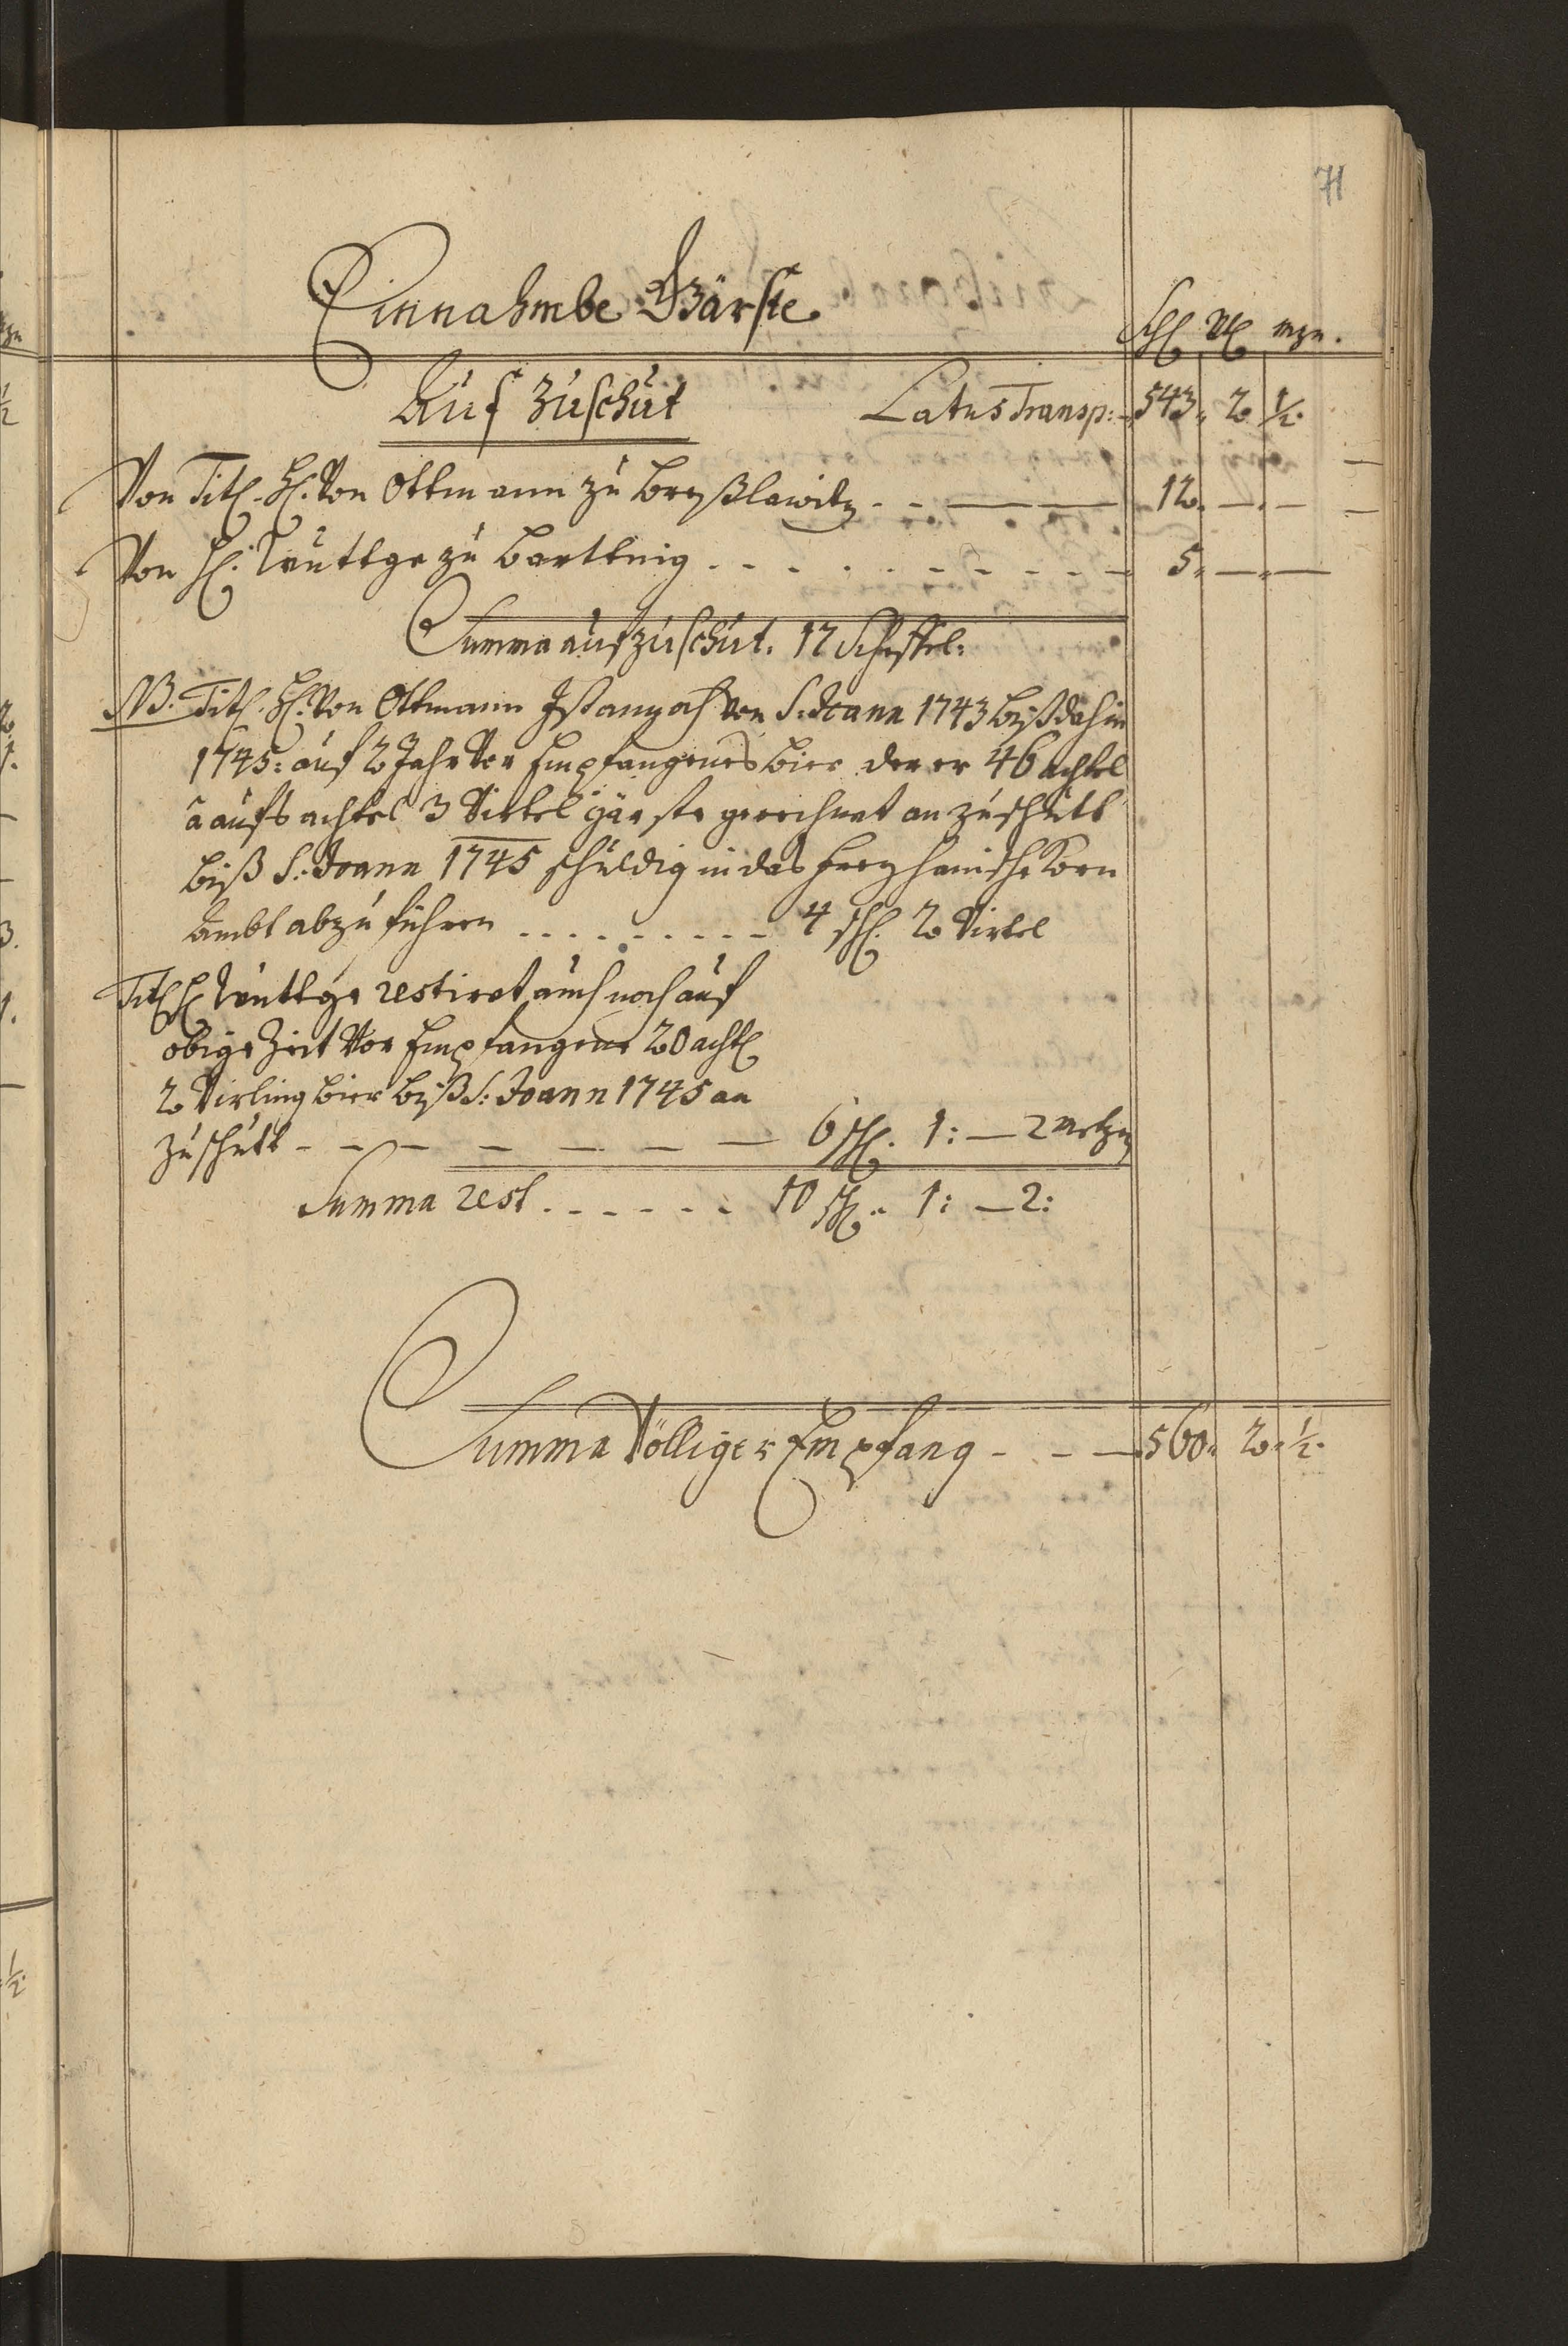 71
Einnahmbe Gärste
Schl Vtl mzn.
Auf Zuschüt Latus Transp: 543. 2. ½.
Von Titl. H. Von Ottmann zu Breßlawitz - - — — — 12. — . —
Von H: Wuttge zu Bartknig - - - - - - - - - 5. — . —
Summa auf zuschüt. 17 Scheffel.
NB. Titl. H. Von Ottmann Ist annoch von S: Joann 1743 biß dahin
1745: auf 2 Jahr Vor Empfangenes bier derer 46 achtel
â aufs achtel 3 Virtel gärste gerechnet an zuschütt
biß S: Joann 1745 schuldig in das herrschafftl Korn
Ambt abzuführen - - - - - - - - - 4 schl. 2 Virtel
Titl H Wuttge restiret auch noch auf
obige Zeit Vor Empfangene 20 achtl
2 Virling bier biß S: Joann 1745 an
zuschütt - - — — — — — 6 schl. 1: — 2 Metzn
Summa rest - - - - - - 10 schl. 1: — 2:
Summa Völliger Empfang - - — 560. 2. ½.